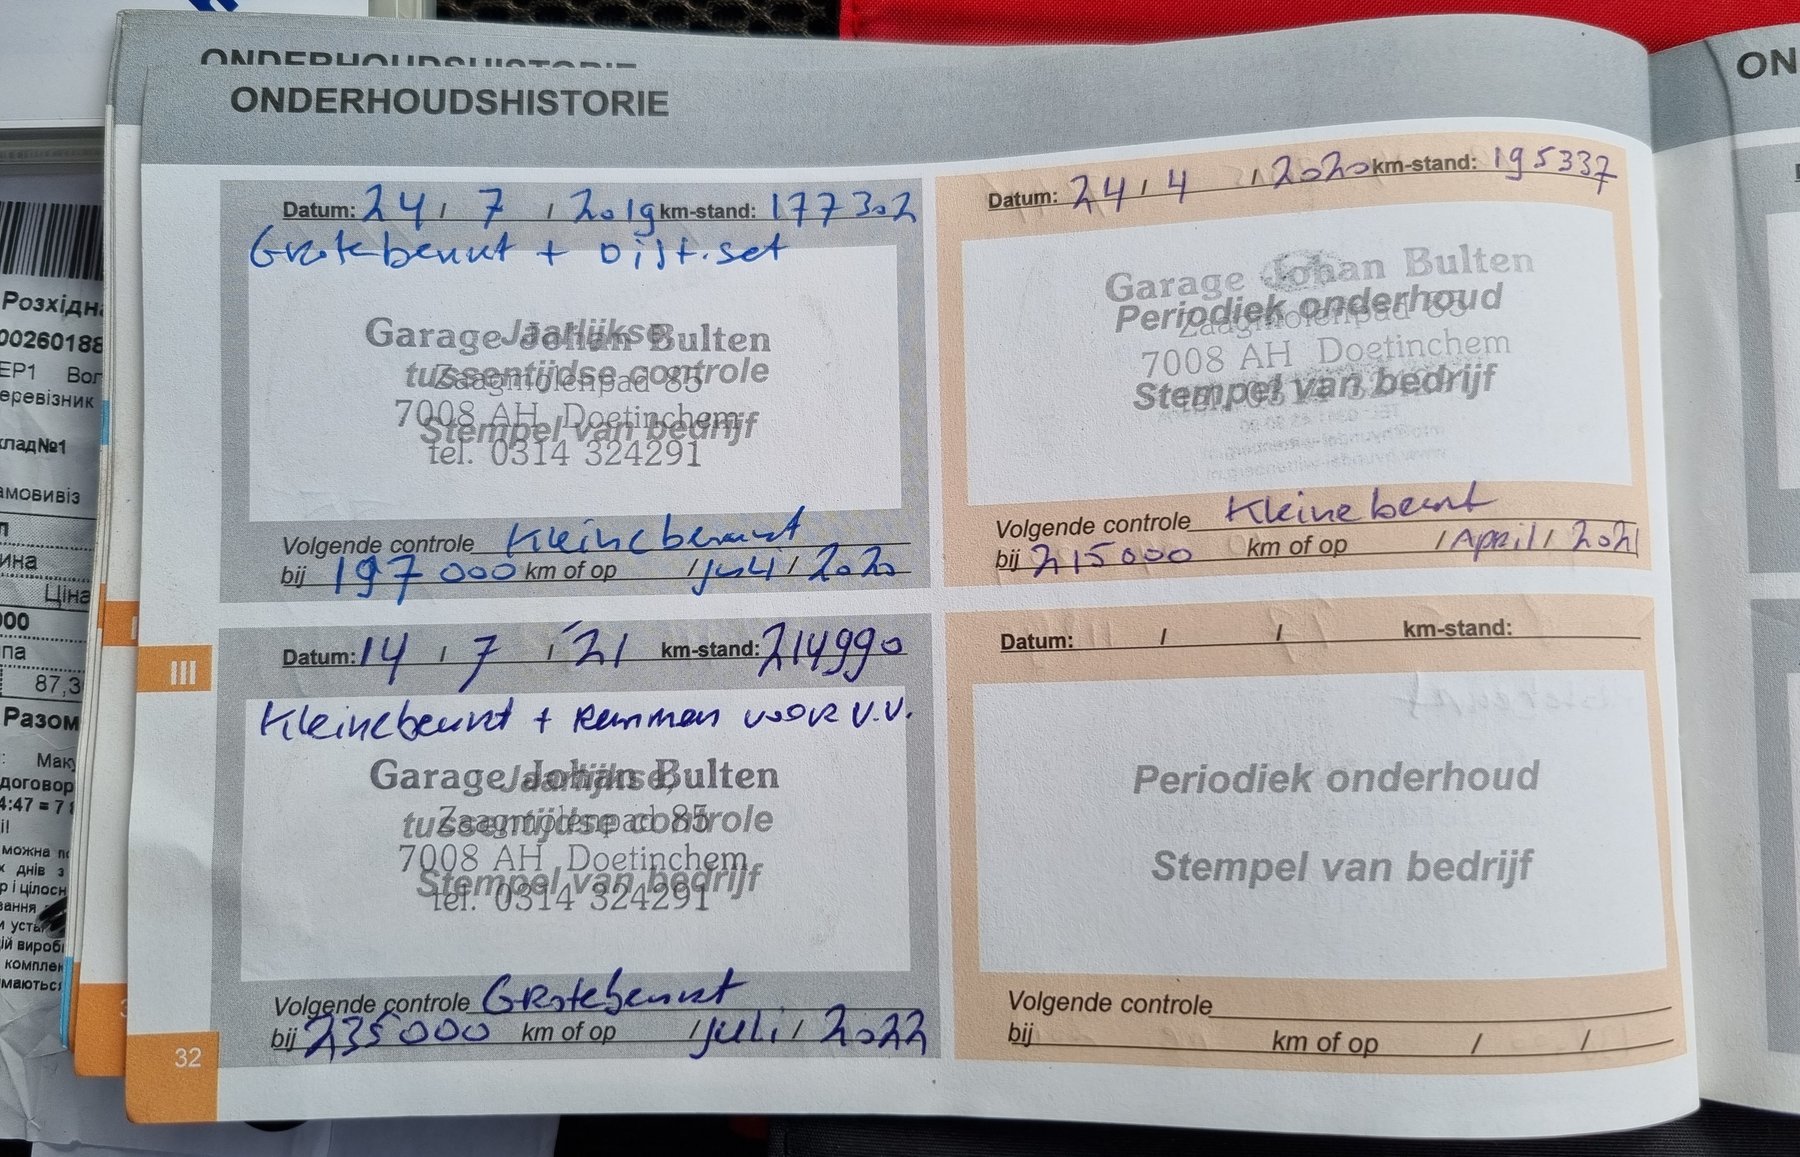 ONDERHOUDSHISTORIE
ONDERHOUDSHISTORIE
ON
Datum: 24 / 7 / 2019 km-stand: 177302
Grotebeurt + Dist.set
Garage Johan Bulten
Jaarlijkse,
tussentijdse controle
Zaagmolenpad 85
7008 AH Doetinchem
Stempel van bedrijf
tel. 0314 324291
Volgende controle Kleinebeurt
bij 197 000 km of op / juli / 2020
Datum: 24 / 4 / 2020 km-stand: 195337
Garage Johan Bulten
Periodiek onderhoud
Zaagmolenpad 85
7008 AH Doetinchem
Stempel van bedrijf
Volgende controle Kleinebeurt
bij 215000 km of op / April / 2021
Datum: 14 / 7 / '21 km-stand: 214990
Kleinebeurt + Remmen voor v.v.
Garage Johan Bulten
Jaarlijkse,
tussentijdse controle
Zaagmolenpad 85
7008 AH Doetinchem
Stempel van bedrijf
tel. 0314 324291
Volgende controle Grotebeurt
bij 235000 km of op / juli / 2022
Datum: / / km-stand:
Periodiek onderhoud
Stempel van bedrijf
Volgende controle
bij km of op / /
III
32
Розхідн
00260188
ЕР1 Вол
еревізник
клад№1
амовивіз
ина
Ціна
000
па
87,3
Разом
: Маку
договор
4:47 = 7
можна
днів з
р і цілосн
ій вироб
комплек
маються